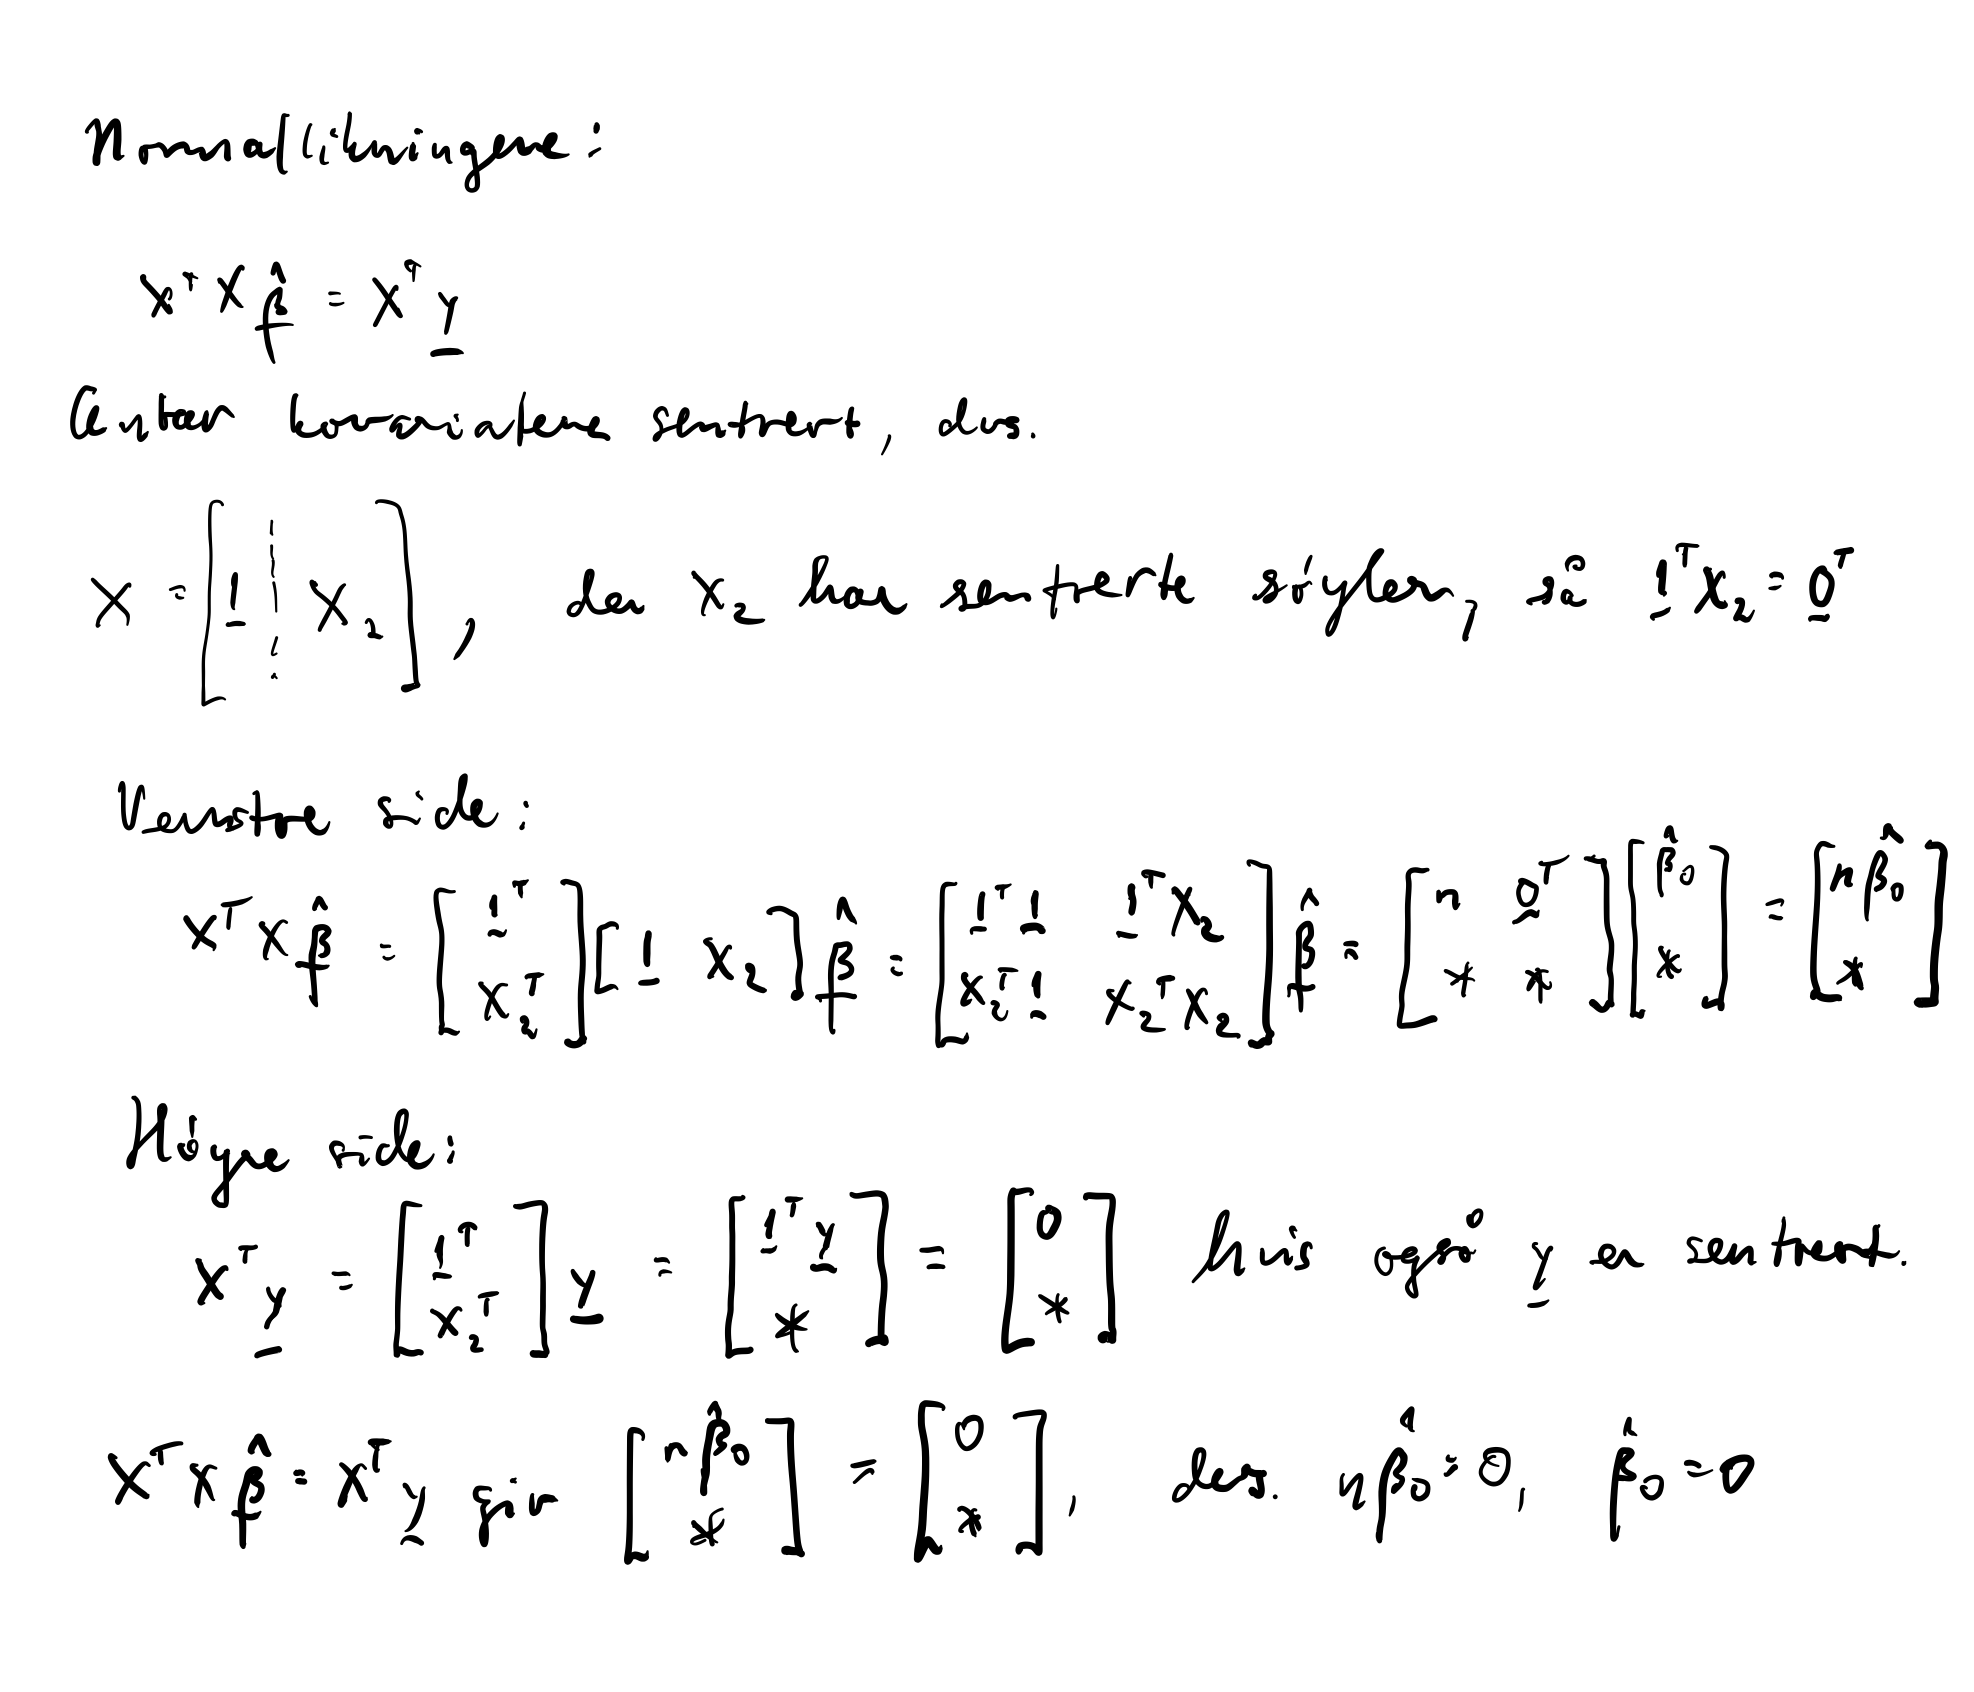 Normallikningene:
X^T X β̂ = X^T y
Antar kovariatene sentrert, dvs.
X = [1 ¦ X_2], der X_2 har sentrerte søyler, så 1^T X_2 = 0^T
Venstre side:
X^T X β̂ = [1^T; X_2^T] [1 X_2] β̂ = [1^T 1 1^T X_2; X_2^T 1 X_2^T X_2] β̂ = [n 0^T; * *] [β̂_0; *] = [n β̂_0; *]
Høyre side:
X^T y = [1^T; X_2^T] y = [1^T y; *] = [0; *] hvis også y er sentrert.
X^T X β̂ = X^T y gir [n β̂_0; *] = [0; *], dvs. n β̂_0 = 0, β̂_0 = 0